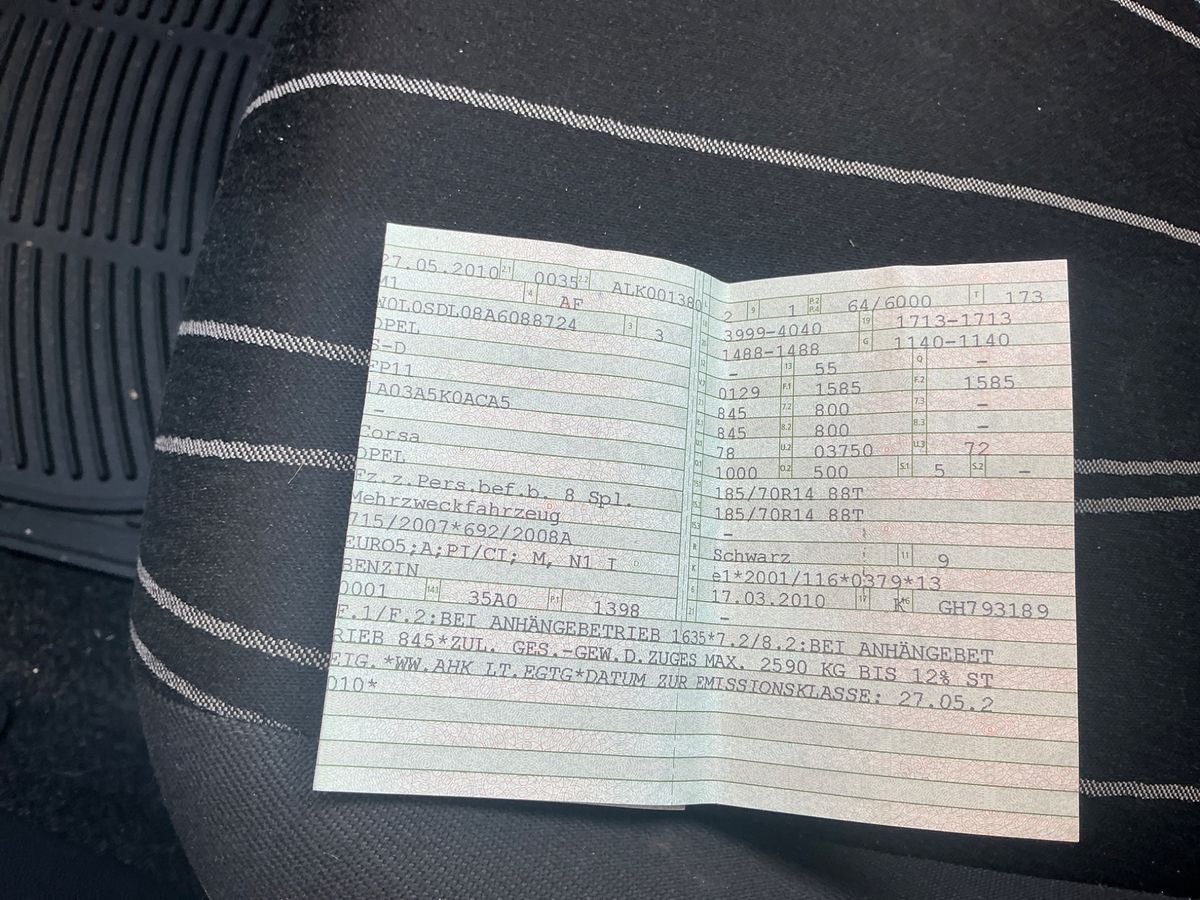 27.05.2010 2.1 0035 2.2 ALK001380
M1 4 AF
W0L0SDL08A6088724 3 3
OPEL
S-D
FP11
1A03A5K0ACA5
-
Corsa
OPEL
Fz.z.Pers.bef.b. 8 Spl.
Mehrzweckfahrzeug
715/2007*692/2008A
EURO5;A;PI/CI; M, N1 I
BENZIN
0001 14.1 35A0 P.1 1398
2 9 1 P.2 P.4 64/6000 T 173
3999-4040 19 1713-1713
1488-1488 G 1140-1140
- 13 55 Q -
0129 F.1 1585 F.2 1585
845 7.2 800 7.3 -
845 8.2 800 8.3 -
78 U.2 03750 U.3 72
1000 O.2 500 S.1 5 S.2 -
185/70R14 88T
185/70R14 88T
-
Schwarz 11 9
e1*2001/116*0379*13
17.03.2010 17 K 16 GH793189
-
F.1/F.2:BEI ANHÄNGEBETRIEB 1635*7.2/8.2:BEI ANHÄNGEBET
RIEB 845*ZUL. GES.-GEW.D.ZUGES MAX. 2590 KG BIS 12% ST
EIG.*WW.AHK LT.EGTG*DATUM ZUR EMISSIONSKLASSE: 27.05.2
010*